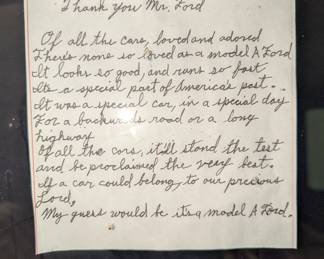 Thank you Mr. Ford
Of all the cars, loved and adored
There's none so loved as a model A Ford
It looks so good, and runs so fast
Its a special part of America's past.
It was a special car, in a special day
For a backwards road or a long
highway
Of all the cars, it'll stand the test
and be proclaimed the very best.
If a car could belong, to our precious
Lord,
My guess would be its a model A Ford.